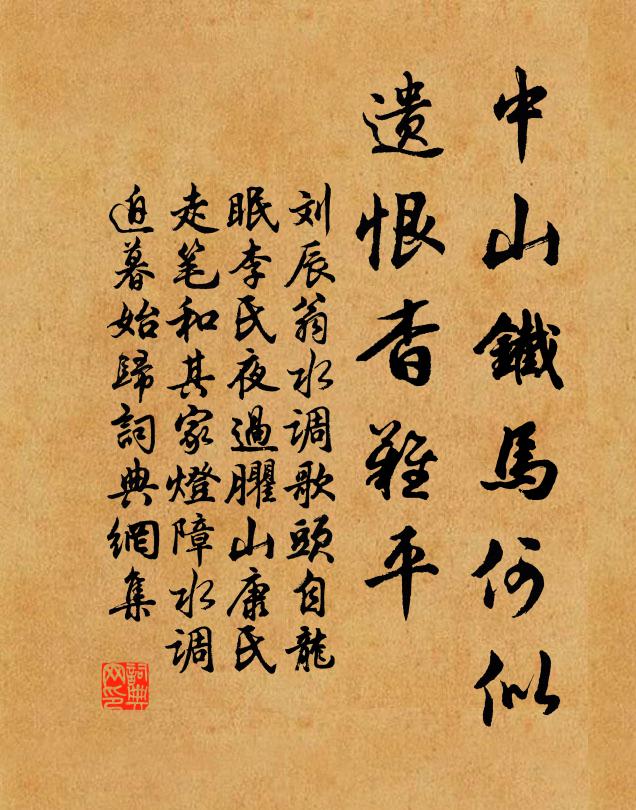 中山鐵馬何似
遗恨杳難平
刘辰翁水调歌頭自龍
眠李氏夜過臞山康氏
走笔和其家燈障水调
迫暮始歸詞典網集
詞典网印